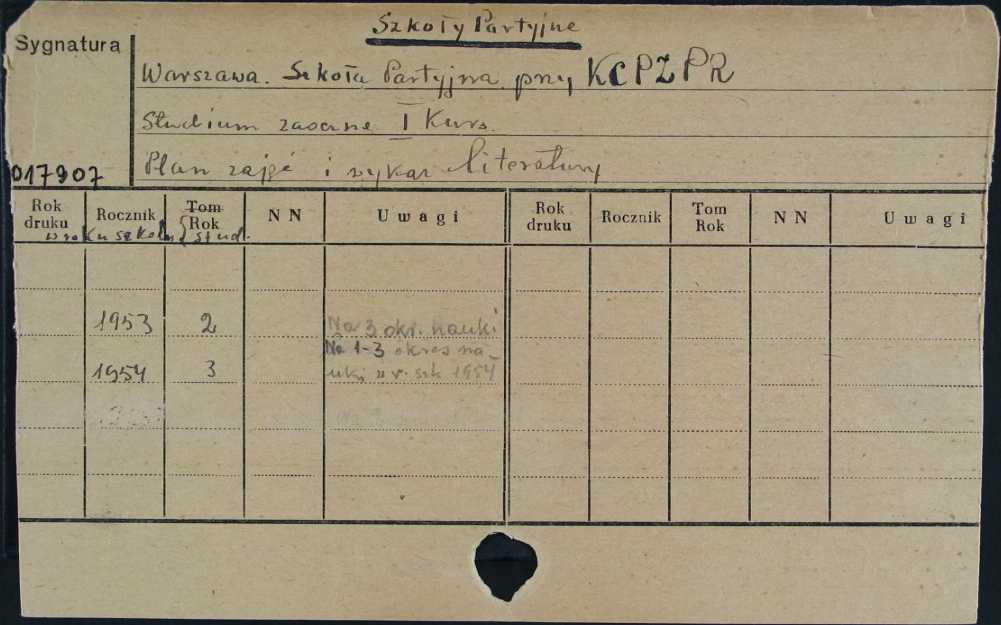 Szkoły Partyjne
Sygnatura
Warszawa. Szkoła Partyjna przy KC PZPR
Studium zaoczne I Kurs.
Plan zajęć i wykaz literatury
017907
Rok druku Rocznik Tom Rok NN Uwagi Rok druku Rocznik Tom Rok NN Uwagi
w roku szkoln. stud.
1953 2 Na 3 okr. nauki
Na 1-3 okres na-
1954 3 uki w r. szk 1954